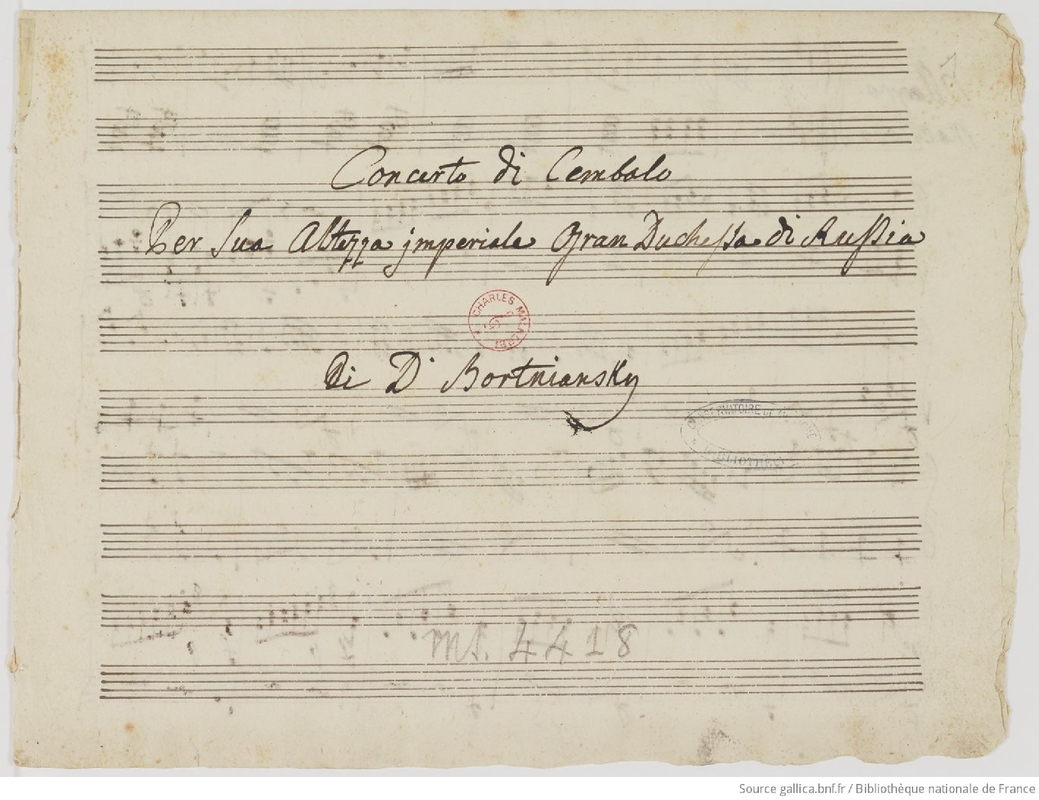 Concerto di Cembalo
Per Sua Altezza imperiale Gran Duchessa di Russia
CHARLES MALHERBE
Di D Bortniansky
BIBLIOTHEQUE
ms. 4418
Source gallica.bnf.fr / Bibliothèque nationale de France